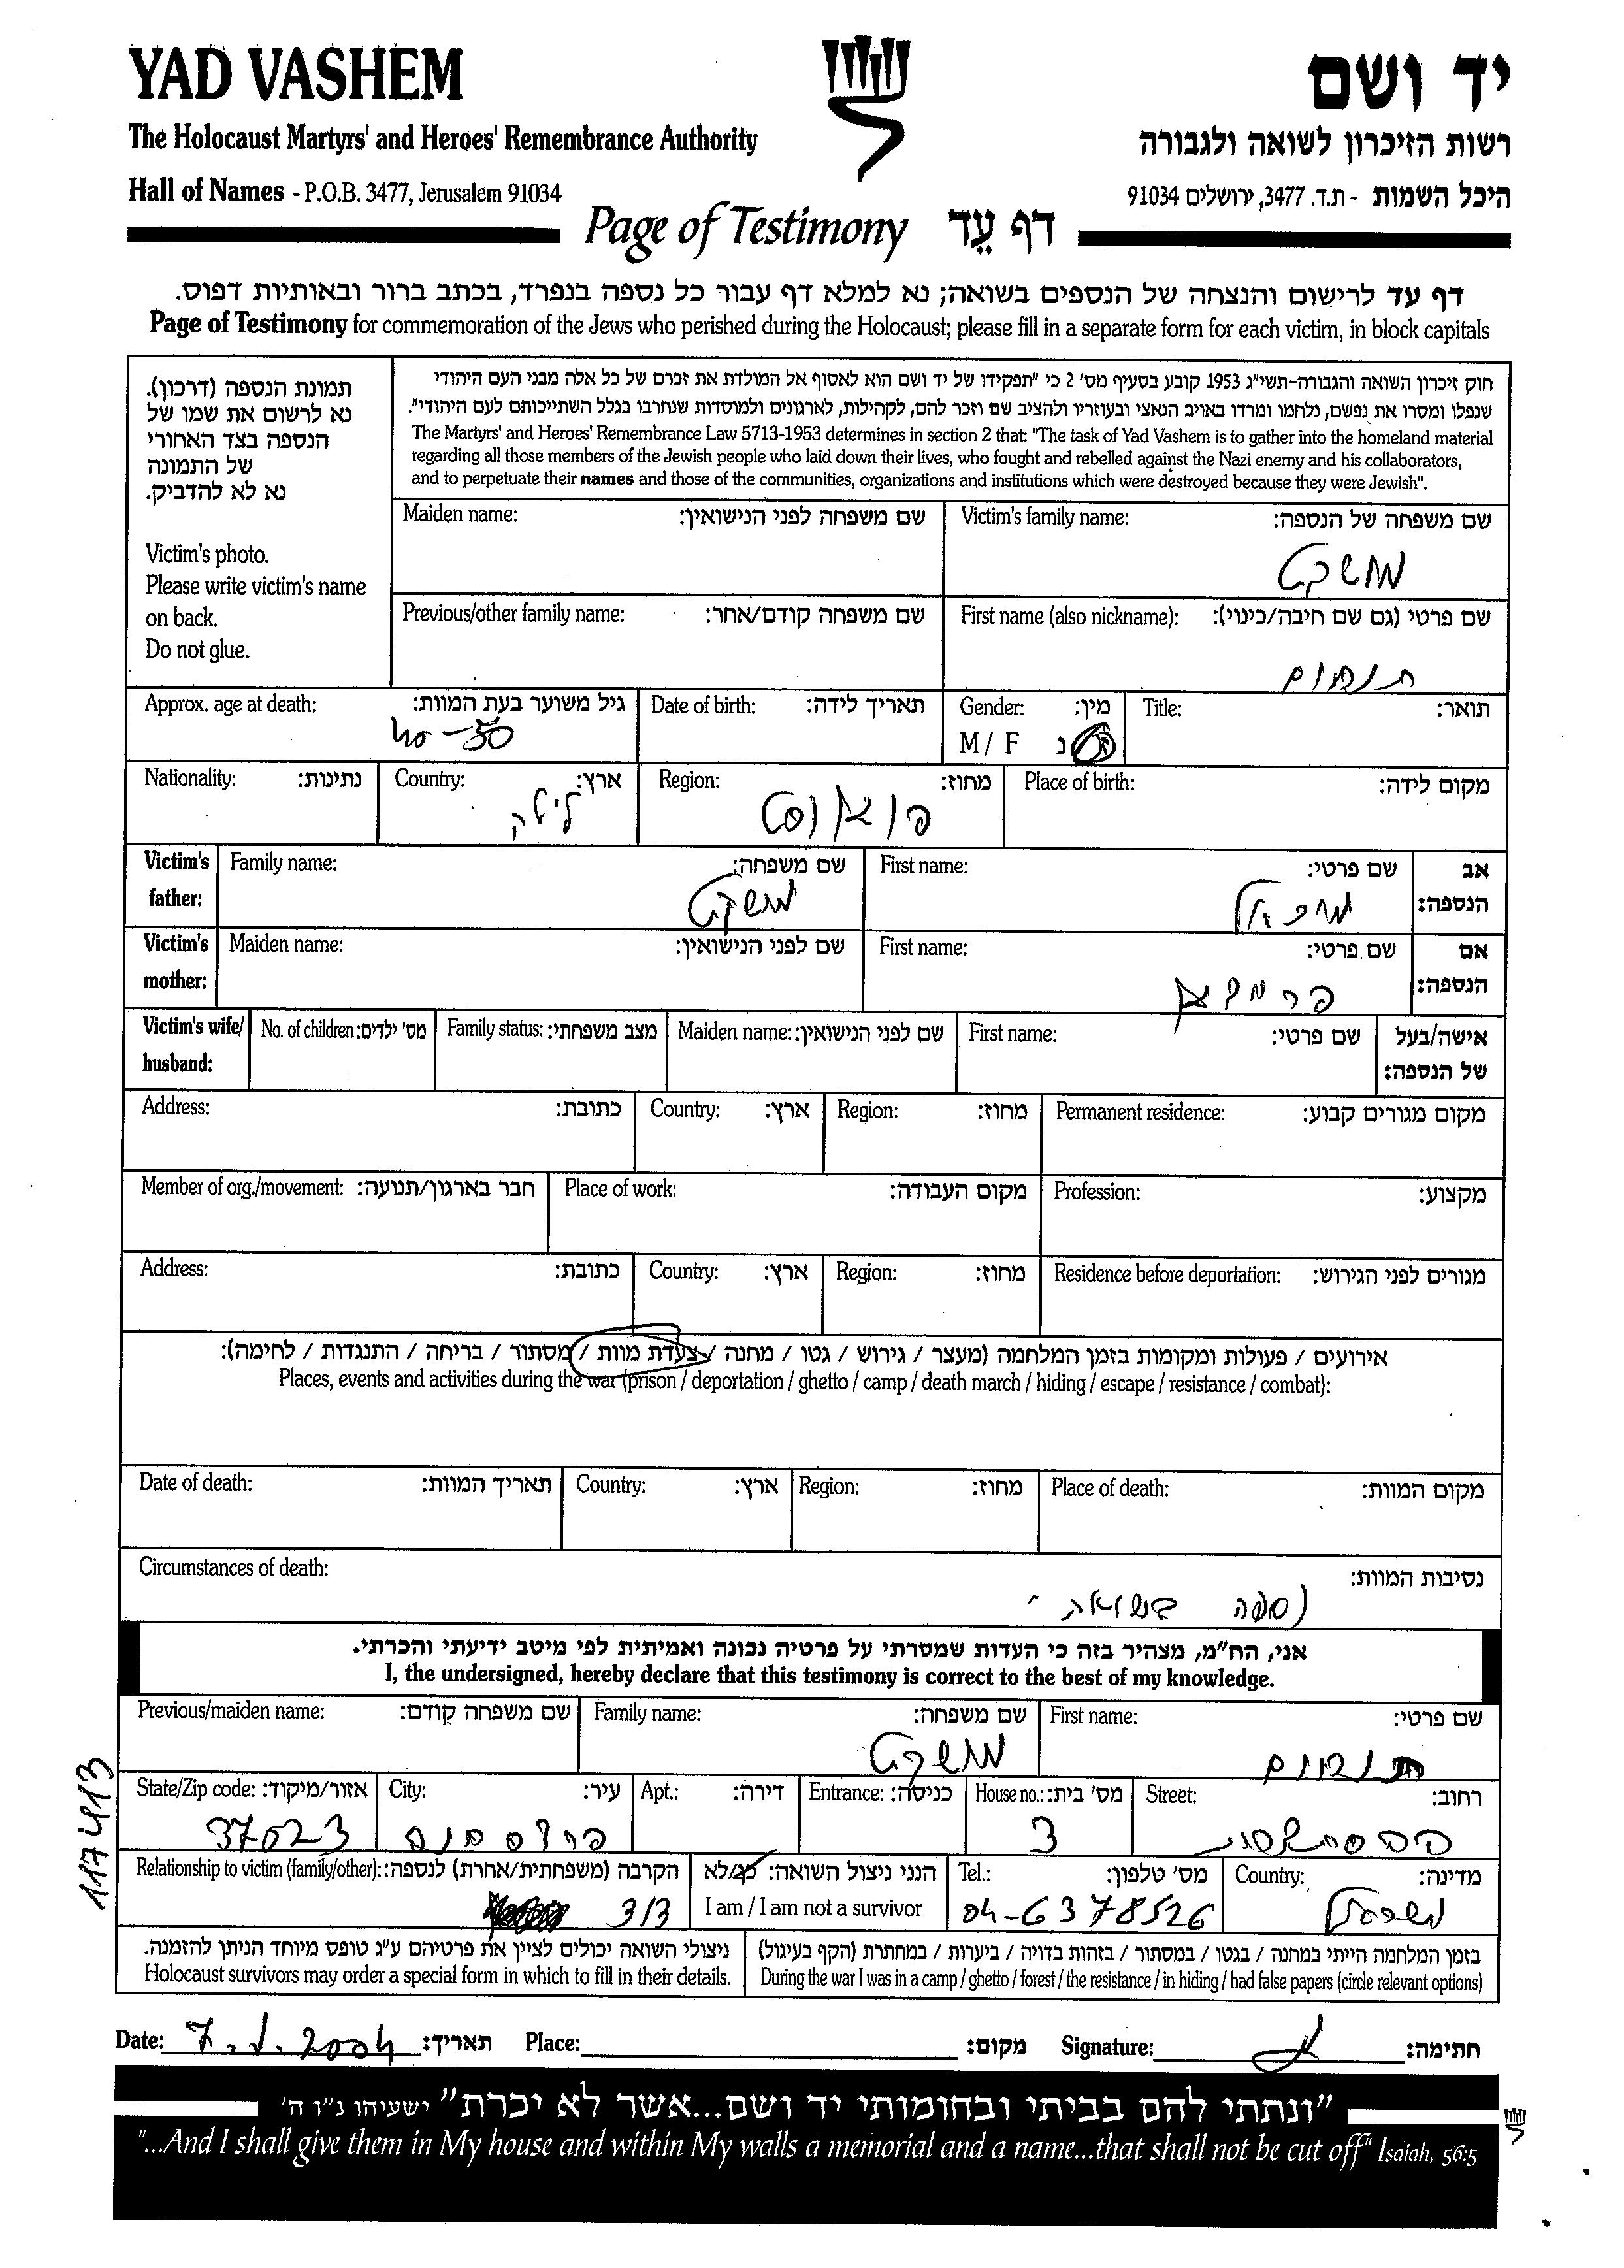 YAD VASHEM
יד ושם
The Holocaust Martyrs' and Heroes' Remembrance Authority
רשות הזיכרון לשואה ולגבורה
Hall of Names - P.O.B. 3477, Jerusalem 91034
היכל השמות - ת.ד. 3477, ירושלים 91034
Page of Testimony דף עֵד
דף עד לרישום והנצחה של הנספים בשואה; נא למלא דף עבור כל נספה בנפרד, בכתב ברור ובאותיות דפוס.
Page of Testimony for commemoration of the Jews who perished during the Holocaust; please fill in a separate form for each victim, in block capitals
תמונת הנספה (דרכון).
נא לרשום את שמו של
הנספה בצד האחורי
של התמונה
נא לא להדביק.
Victim's photo.
Please write victim's name
on back.
Do not glue.
חוק זיכרון השואה והגבורה-תשי"ג 1953 קובע בסעיף מס' 2 כי "תפקידו של יד ושם הוא לאסוף אל המולדת את זכרם של כל אלה מבני העם היהודי
שנפלו ומסרו את נפשם, נלחמו ומרדו באויב הנאצי ובעוזריו ולהציב שם וזכר להם, לקהילות, לארגונים ולמוסדות שנחרבו בגלל השתייכותם לעם היהודי".
The Martyrs' and Heroes' Remembrance Law 5713-1953 determines in section 2 that: "The task of Yad Vashem is to gather into the homeland material
regarding all those members of the Jewish people who laid down their lives, who fought and rebelled against the Nazi enemy and his collaborators,
and to perpetuate their names and those of the communities, organizations and institutions which were destroyed because they were Jewish".
Maiden name: שם משפחה לפני הנישואין: Victim's family name: שם משפחה של הנספה:
מושקט
Previous/other family name: שם משפחה קודם/אחר: First name (also nickname): שם פרטי (גם שם חיבה/כינוי):
תנחום
Approx. age at death: גיל משוער בעת המוות: Date of birth: תאריך לידה: Gender: מין: Title: תואר:
40-50 M / F נ
Nationality: נתינות: Country: ארץ: Region: מחוז: Place of birth: מקום לידה:
ליטה
Victim's father: Family name: שם משפחה: First name: שם פרטי: אב הנספה:
מושקט
Victim's mother: Maiden name: שם לפני הנישואין: First name: שם פרטי: אם הנספה:
Victim's wife/ husband: No. of children: מס' ילדים: Family status: מצב משפחתי: Maiden name: שם לפני הנישואין: First name: שם פרטי: אישה/בעל של הנספה:
Address: כתובת: Country: ארץ: Region: מחוז: Permanent residence: מקום מגורים קבוע:
Member of org./movement: חבר בארגון/תנועה: Place of work: מקום העבודה: Profession: מקצוע:
Address: כתובת: Country: ארץ: Region: מחוז: Residence before deportation: מגורים לפני הגירוש:
אירועים / פעולות ומקומות בזמן המלחמה (מעצר / גירוש / גטו / מחנה / צעדת מוות / מסתור / בריחה / התנגדות / לחימה):
Places, events and activities during the war (prison / deportation / ghetto / camp / death march / hiding / escape / resistance / combat):
Date of death: תאריך המוות: Country: ארץ: Region: מחוז: Place of death: מקום המוות:
Circumstances of death: נסיבות המוות:
נספה בשואה.
אני, הח"מ, מצהיר בזה כי העדות שמסרתי על פרטיה נכונה ואמיתית לפי מיטב ידיעתי והכרתי.
I, the undersigned, hereby declare that this testimony is correct to the best of my knowledge.
Previous/maiden name: שם משפחה קודם: Family name: שם משפחה: First name: שם פרטי:
מושקט תנחום
State/Zip code: אזור/מיקוד: City: עיר: Apt.: דירה: Entrance: כניסה: House no.: מס' בית: Street: רחוב:
37023 פרדס חנה 3
Relationship to victim (family/other): הקרבה (משפחתית/אחרת) לנספה: הנני ניצול השואה: כן/לא Tel.: מס' טלפון: Country: מדינה:
דוד I am / I am not a survivor 04-6378526 ישראל
ניצולי השואה יכולים לציין את פרטיהם ע"ג טופס מיוחד הניתן להזמנה.
Holocaust survivors may order a special form in which to fill in their details.
בזמן המלחמה הייתי במחנה / בגטו / במסתור / בזהות בדויה / ביערות / במחתרת (הקף בעיגול)
During the war I was in a camp / ghetto / forest / the resistance / in hiding / had false papers (circle relevant options)
117413
Date: 7.1.2004 תאריך: Place: מקום: Signature: חתימה:
"ונתתי להם בביתי ובחומותי יד ושם...אשר לא יכרת" ישעיהו נ"ו ה'
"...And I shall give them in My house and within My walls a memorial and a name...that shall not be cut off" Isaiah, 56:5